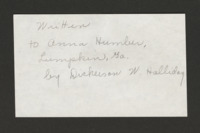 Written
to Anna Humber,
Lumpkin, Ga.
by Dickerson W. Holliday